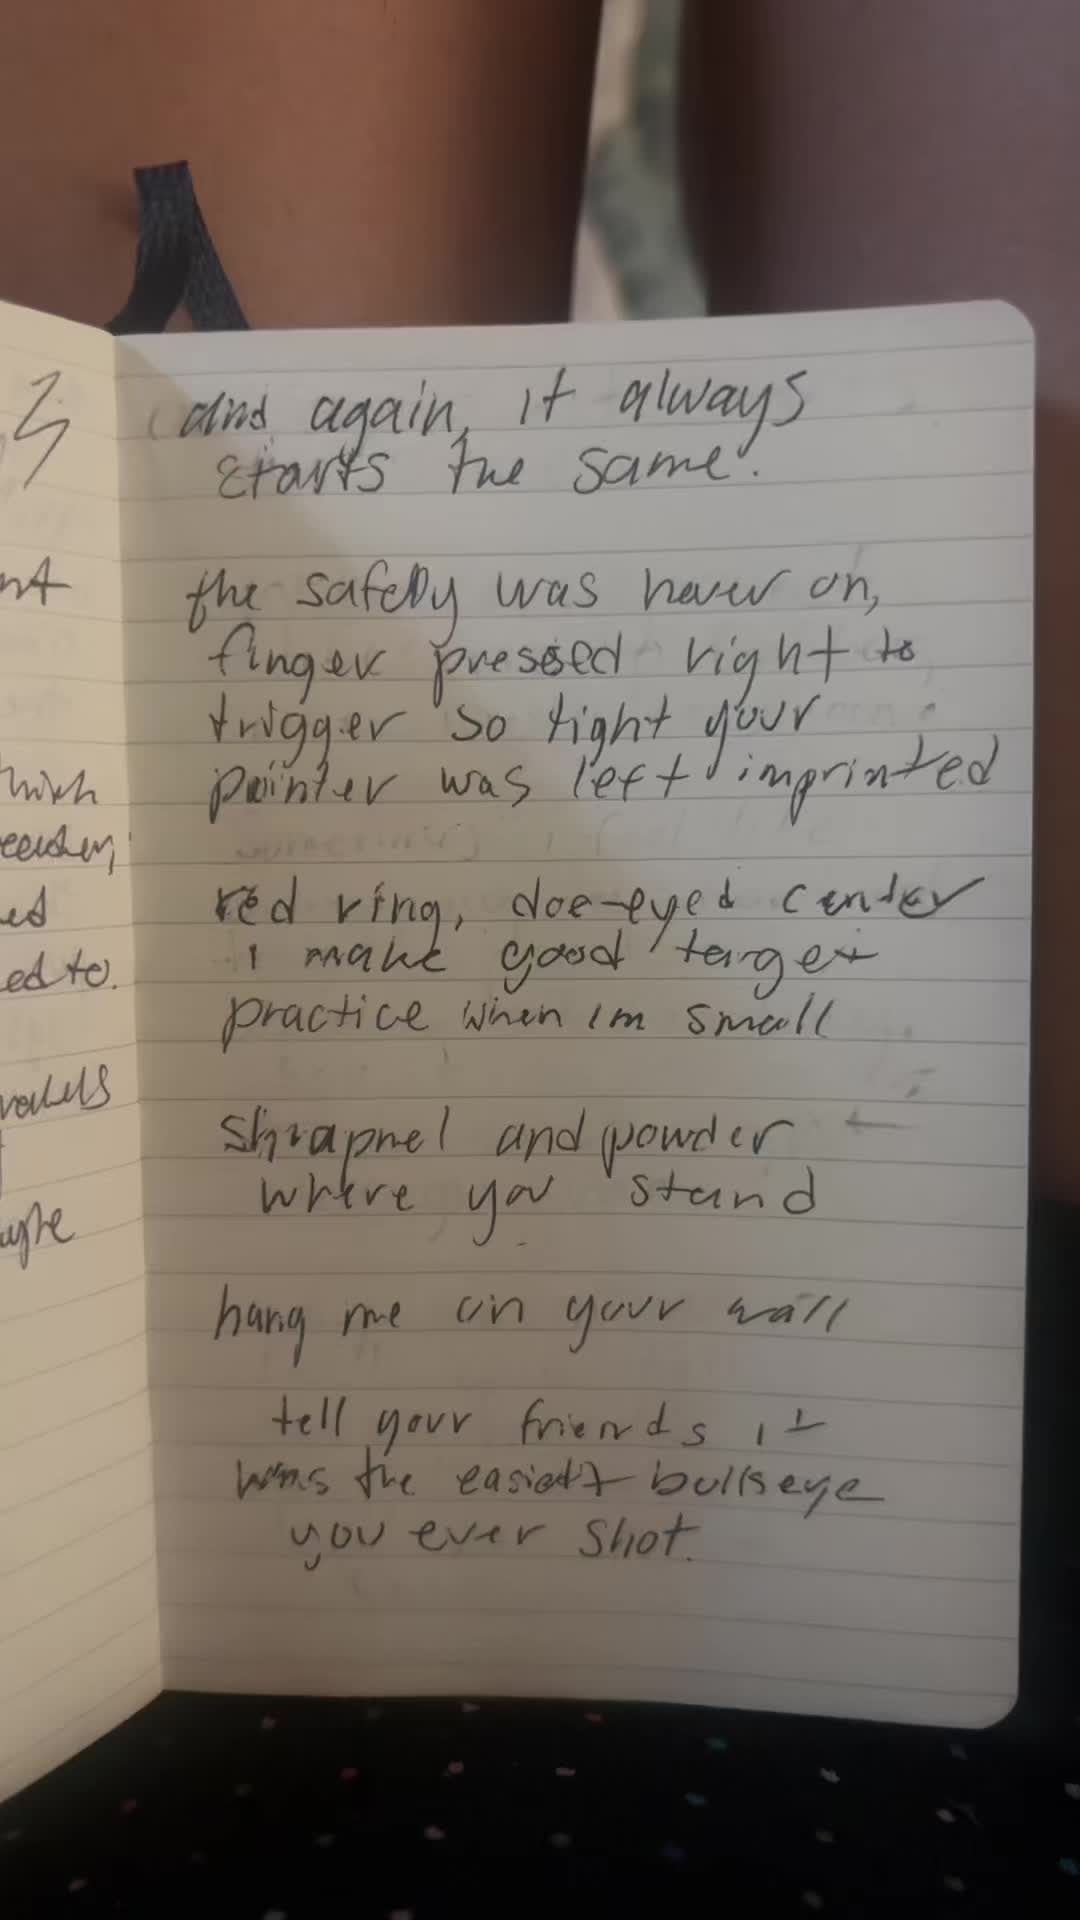 and again, it always
starts the same.
the safety was never on,
finger pressed right to
trigger so tight your
pointer was left imprinted
red ring, doe-eyed center
i make good target
practice when im small
Shrapnel and powder
where you stand
hang me on your wall
tell your friends it
was the easiest bullseye
you ever shot.
ed to.